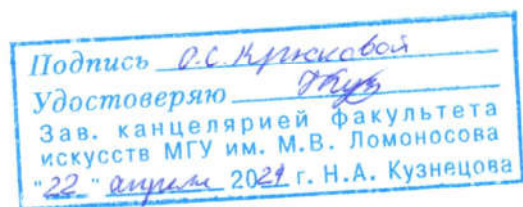 Подпись О.С. Крюковой
Удостоверяю
Зав. канцелярией факультета
искусств МГУ им. М.В. Ломоносова
"22" апреля 2021 г. Н.А. Кузнецова